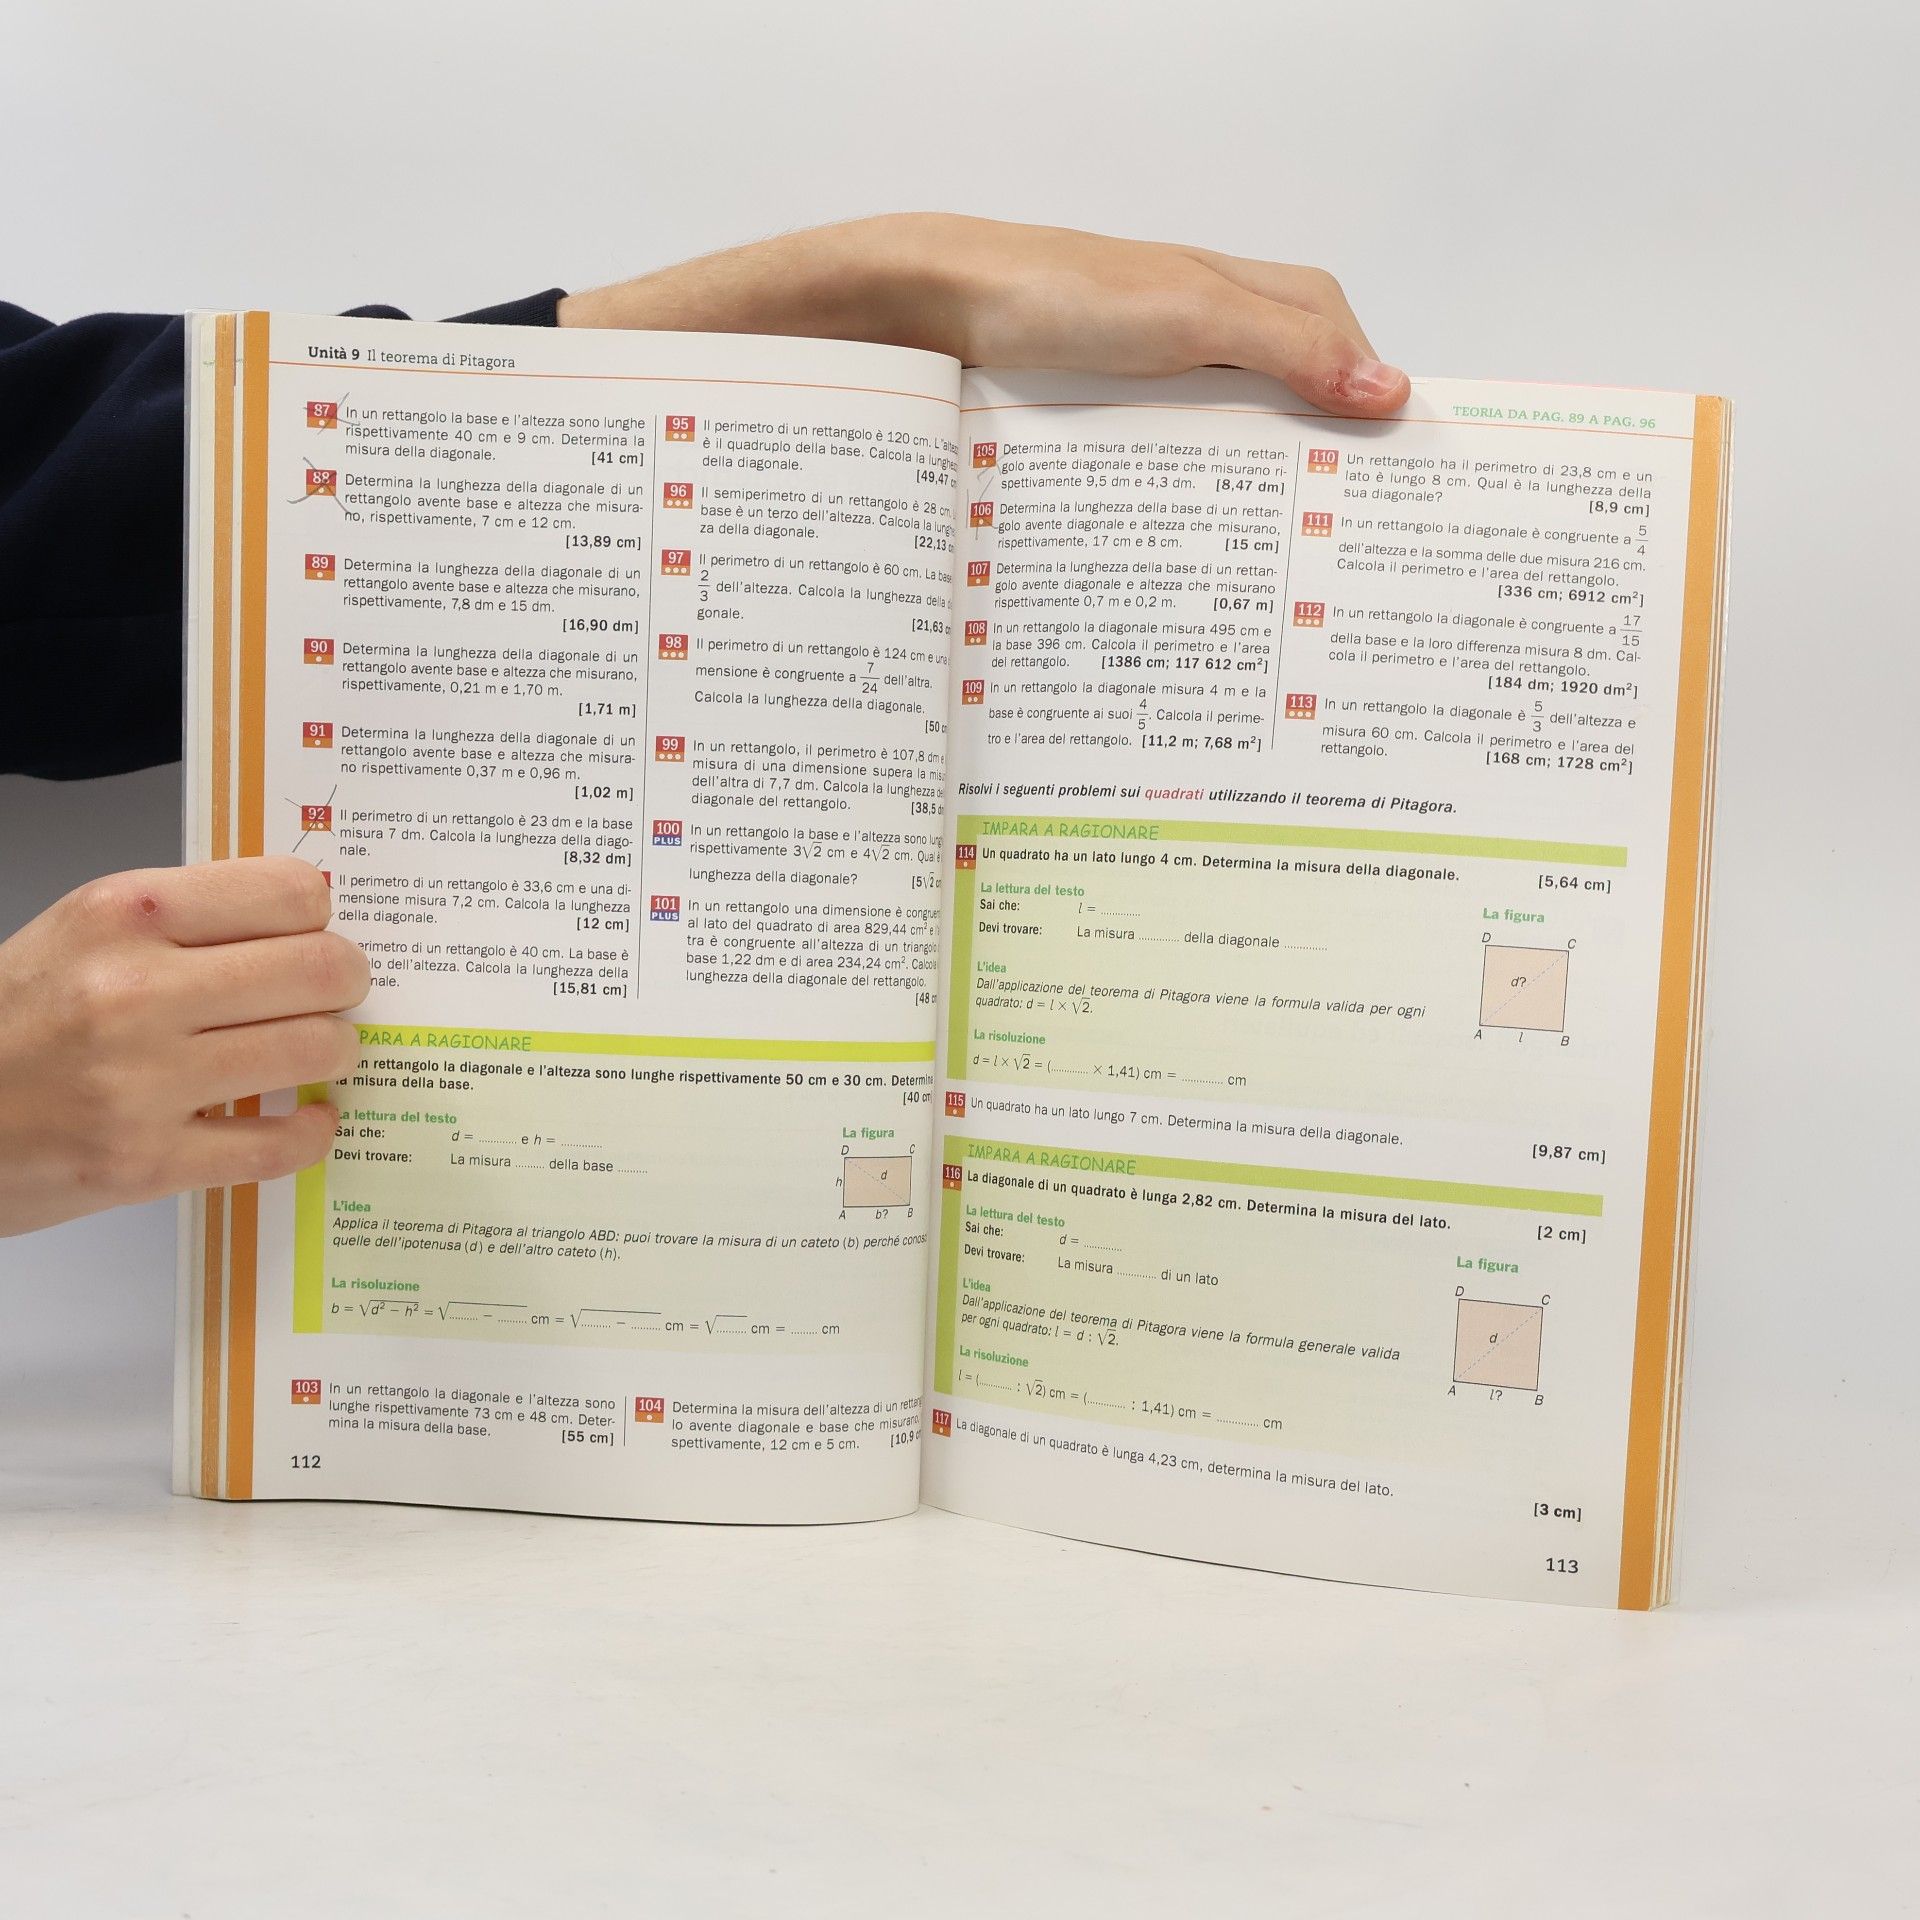 Unità 9 Il teorema di Pitagora
87 In un rettangolo la base e l'altezza sono lunghe
rispettivamente 40 cm e 9 cm. Determina la
misura della diagonale. [41 cm]
88 Determina la lunghezza della diagonale di un
rettangolo avente base e altezza che misura-
no, rispettivamente, 7 cm e 12 cm.
[13,89 cm]
89 Determina la lunghezza della diagonale di un
rettangolo avente base e altezza che misurano,
rispettivamente, 7,8 dm e 15 dm.
[16,90 dm]
90 Determina la lunghezza della diagonale di un
rettangolo avente base e altezza che misurano,
rispettivamente, 0,21 m e 1,70 m.
[1,71 m]
91 Determina la lunghezza della diagonale di un
rettangolo avente base e altezza che misura-
no rispettivamente 0,37 m e 0,96 m.
[1,02 m]
92 Il perimetro di un rettangolo è 23 dm e la base
misura 7 dm. Calcola la lunghezza della diago-
nale. [8,32 dm]
Il perimetro di un rettangolo è 33,6 cm e una di-
mensione misura 7,2 cm. Calcola la lunghezza
della diagonale. [12 cm]
erimetro di un rettangolo è 40 cm. La base è
lo dell'altezza. Calcola la lunghezza della
nale. [15,81 cm]
95 Il perimetro di un rettangolo è 120 cm. L'altez
è il quadruplo della base. Calcola la lunghez
della diagonale.
[49,47 c
96 Il semiperimetro di un rettangolo è 28 cm.
base è un terzo dell'altezza. Calcola la lungh
za della diagonale. [22,13 c
97 Il perimetro di un rettangolo è 60 cm. La base
2/3 dell'altezza. Calcola la lunghezza della
gonale. [21,63 c
98 Il perimetro di un rettangolo è 124 cm e una
mensione è congruente a 7/24 dell'altra.
Calcola la lunghezza della diagonale.
[50 c
99 In un rettangolo, il perimetro è 107,8 dm e
misura di una dimensione supera la mis
dell'altra di 7,7 dm. Calcola la lunghezza de
diagonale del rettangolo. [38,5 d
100 PLUS In un rettangolo la base e l'altezza sono lung
rispettivamente 3√2 cm e 4√2 cm. Qual è
lunghezza della diagonale? [5√2 c
101 PLUS In un rettangolo una dimensione è congruen
al lato del quadrato di area 829,44 cm² e l
tra è congruente all'altezza di un triangolo
base 1,22 dm e di area 234,24 cm². Calcola
lunghezza della diagonale del rettangolo.
[48 c
PARA A RAGIONARE
n rettangolo la diagonale e l'altezza sono lunghe rispettivamente 50 cm e 30 cm. Determina
la misura della base. [40 cm
La lettura del testo
Sai che: d = ............ e h = ............
Devi trovare: La misura ......... della base .........
La figura
D C
h d
A b? B
L'idea
Applica il teorema di Pitagora al triangolo ABD: puoi trovare la misura di un cateto (b) perché conos
quelle dell'ipotenusa (d) e dell'altro cateto (h).
La risoluzione
b = √d² – h² = √......... – ......... cm = √......... – ......... cm = √......... cm = ........ cm
103 In un rettangolo la diagonale e l'altezza sono
lunghe rispettivamente 73 cm e 48 cm. Deter-
mina la misura della base. [55 cm]
104 Determina la misura dell'altezza di un rettan
lo avente diagonale e base che misurano,
spettivamente, 12 cm e 5 cm. [10,9 c
112
TEORIA DA PAG. 89 A PAG. 96
105 Determina la misura dell'altezza di un rettan-
golo avente diagonale e base che misurano ri-
spettivamente 9,5 dm e 4,3 dm. [8,47 dm]
106 Determina la lunghezza della base di un rettan-
golo avente diagonale e altezza che misurano,
rispettivamente, 17 cm e 8 cm. [15 cm]
107 Determina la lunghezza della base di un rettan-
golo avente diagonale e altezza che misurano
rispettivamente 0,7 m e 0,2 m. [0,67 m]
108 In un rettangolo la diagonale misura 495 cm e
la base 396 cm. Calcola il perimetro e l'area
del rettangolo. [1386 cm; 117 612 cm²]
109 In un rettangolo la diagonale misura 4 m e la
base è congruente ai suoi 4/5. Calcola il perime-
tro e l'area del rettangolo. [11,2 m; 7,68 m²]
110 Un rettangolo ha il perimetro di 23,8 cm e un
lato è lungo 8 cm. Qual è la lunghezza della
sua diagonale? [8,9 cm]
111 In un rettangolo la diagonale è congruente a 5/4
dell'altezza e la somma delle due misura 216 cm.
Calcola il perimetro e l'area del rettangolo.
[336 cm; 6912 cm²]
112 In un rettangolo la diagonale è congruente a 17/15
della base e la loro differenza misura 8 dm. Cal-
cola il perimetro e l'area del rettangolo.
[184 dm; 1920 dm²]
113 In un rettangolo la diagonale è 5/3 dell'altezza e
misura 60 cm. Calcola il perimetro e l'area del
rettangolo. [168 cm; 1728 cm²]
Risolvi i seguenti problemi sui quadrati utilizzando il teorema di Pitagora.
IMPARA A RAGIONARE
114 Un quadrato ha un lato lungo 4 cm. Determina la misura della diagonale. [5,64 cm]
La lettura del testo
Sai che: l = ............
Devi trovare: La misura ............ della diagonale ............
La figura
D C
d?
A l B
L'idea
Dall'applicazione del teorema di Pitagora viene la formula valida per ogni
quadrato: d = l × √2.
La risoluzione
d = l × √2 = (............ × 1,41) cm = ............ cm
115 Un quadrato ha un lato lungo 7 cm. Determina la misura della diagonale.
[9,87 cm]
IMPARA A RAGIONARE
116 La diagonale di un quadrato è lunga 2,82 cm. Determina la misura del lato. [2 cm]
La lettura del testo
Sai che: d = ............
Devi trovare: La misura ............ di un lato
La figura
D C
d
A l? B
L'idea
Dall'applicazione del teorema di Pitagora viene la formula generale valida
per ogni quadrato: l = d : √2.
La risoluzione
l = (............ : √2) cm = (............ : 1,41) cm = ............ cm
117 La diagonale di un quadrato è lunga 4,23 cm, determina la misura del lato.
[3 cm]
113